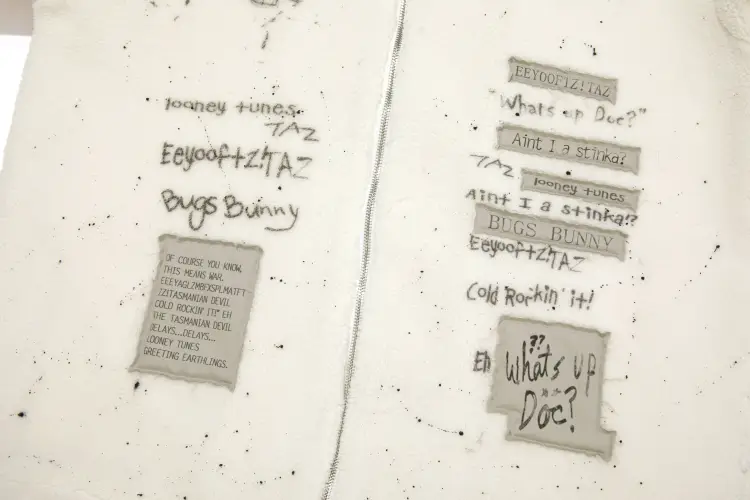 looney tunes
TAZ
Eeyooftz!TAZ
Bugs Bunny
OF COURSE YOU KNOW,
THIS MEANS WAR.
EEEYAGLZMBFXSPLMATFT
!ZITASMANIAN DEVIL
COLD ROCKIN' IT!" EH
THE TASMANIAN DEVIL
DELAYS...DELAYS...
LOONEY TUNES
GREETING EARTHLINGS.
EEYOOFTZ!TAZ
"Whats up Doc?"
Aint I a stinka?
TAZ
looney tunes
Aint I a stinka!?
BUGS BUNNY
Eeyooftz!TAZ
Cold Rockin' it!
Eh
??
Whats up
Doc?